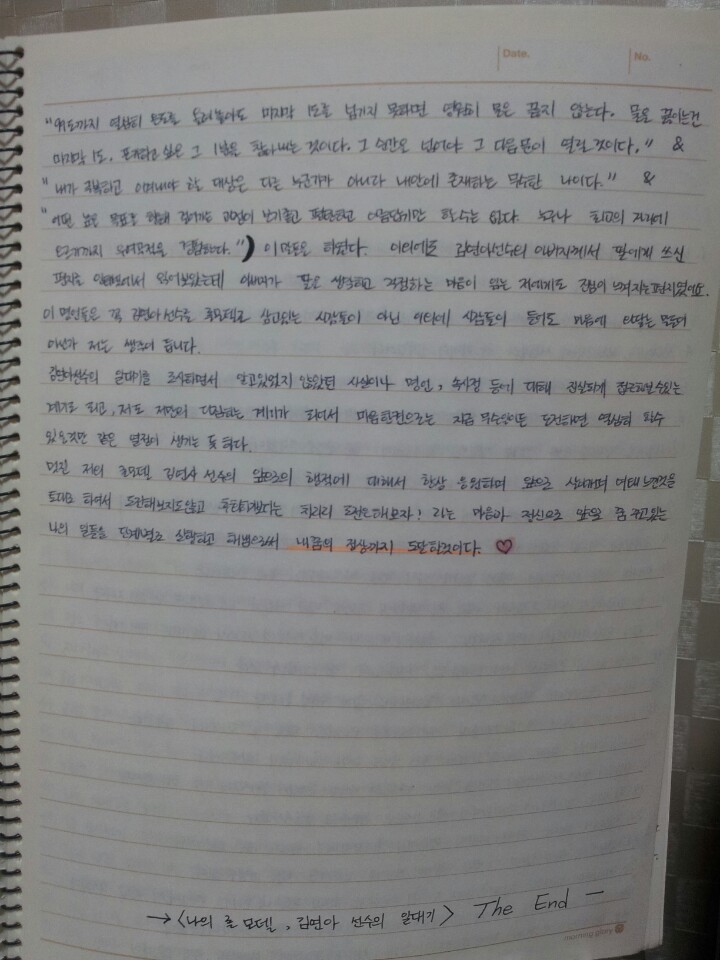 Date. No.
"99도까지 열심히 온도를 올려놓아도 마지막 1도를 넘기지 못하면 영원히 물은 끓지 않는다. 물을 끓이는건
마지막 1도. 포기하고 싶은 그 1분을 참아내는 것이다. 그 순간을 넘어야 그 다음문이 열릴것이다." &
"내가 극복하고 이겨내야 할 대상은 다른 누군가가 아니라 내안에 존재하는 무수한 나이다." &
"어떤 높은 목표를 향해 걸어가는 과정이 반가울고 평탄하고 아름답기만 할 수는 없다. 누구나 최고의 자리에
오르기까지 우여곡절을 경험한다.") 이 말들을 하셨다. 이외에도 김연아선수의 아버지께서 딸에게 쓰신
편지를 인터넷에서 읽어보았는데 아버지가 딸을 생각하고 걱정하는 마음이 읽는 저에게도 진심이 느껴지는편지였어요.
이 명언들은 꼭 김연아선수를 롤모델로 삼고있는 사람들이 아닌 이외에 사람들이 들어도 마음에 와닿는 말들이
아닌가 저는 생각이 듭니다.
김연아선수의 일대기를 조사하면서 알고있었지 않았던 사실이나 명언, 속사정 등에 대해 진실하게 접근해볼수있는
계기로 되고, 저도 저만의 다짐하는 계기가 되어서 마음한편으로는 지금 무수한이든 도전하면 열심히 할수
있을것만 같은 열정이 생기는 듯 하다.
멋진 저의 롤모델 김연아 선수의 앞으로의 행적에 대해서 항상 응원하며 앞으로 살아가며 여태 느낀것을
토대로 하여서 도전해보지도않고 후회하겠다는 차라리 도전은해보자! 라는 마음아 정신으로 앞으로 꿈 꾸고있는
나의 일들을 단계별로 실행하고 해냄으로써 내꿈의 정상까지 도달할것이다. ♡
→ <나의 롤 모델, 김연아 선수의 일대기> The End –
morning glory